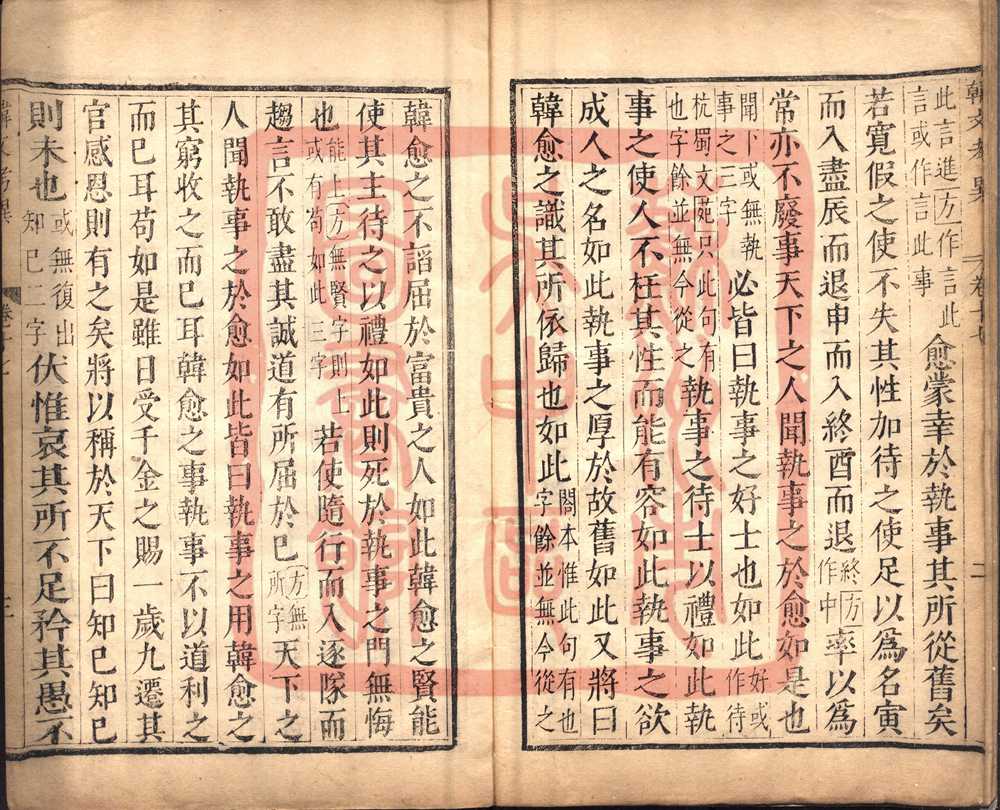 韓文考異 卷十七 二
此言進方作言此言或作言此事 愈蒙幸於執事其所從舊矣
若寬假之使不失其性加待之使足以爲名寅
而入盡辰而退申而入終酉而退終方作中率以爲
常亦不廢事天下之人聞執事之於愈如是也
聞下或無執事之三字 必皆曰執事之好士也如此好或作待
杭蜀文苑只此句有也字餘並無今從之 執事之待士以禮如此執
事之使人不枉其性而能有容如此執事之欲
成人之名如此執事之厚於故舊如此又將曰
韓愈之識其所依歸也如此閣本惟此句有也字餘並無今從之
韓愈之不諂屈於富貴之人如此韓愈之賢能
使其主待之以禮如此則死於執事之門無悔
也能上方無賢字則上或有苟如此三字 若使隨行而入逐隊而
趨言不敢盡其誠道有所屈於已方無所字天下之
人聞執事之於愈如此皆曰執事之用韓愈之
其窮收之而已耳韓愈之事執事不以道利之
而已耳苟如是雖日受千金之賜一歲九遷其
官感恩則有之矣將以稱於天下曰知已知已
則未也或無復出知已二字 伏惟哀其所不足矜其愚不
三